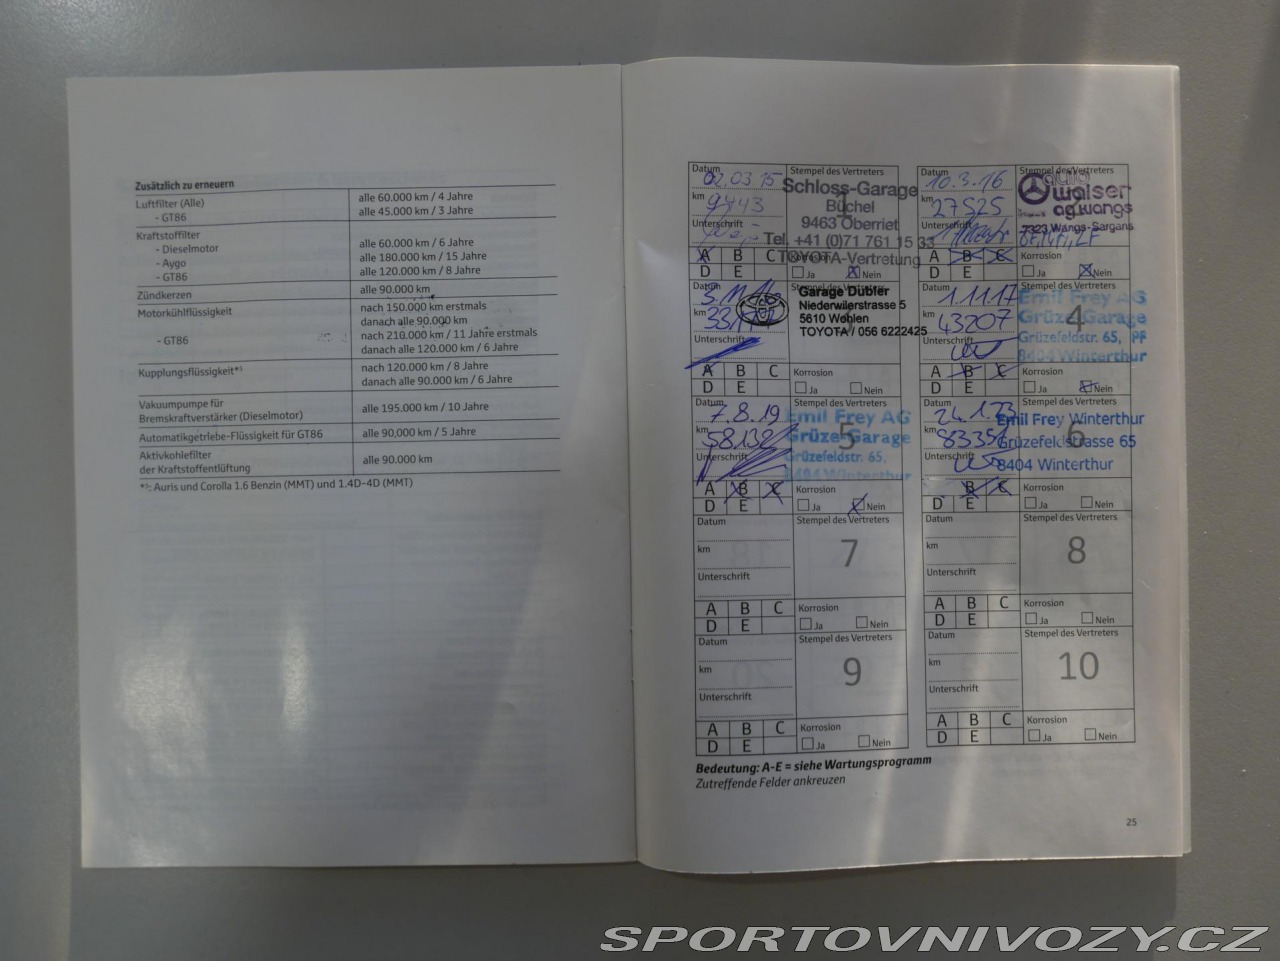 Zusätzlich zu erneuern
Luftfilter (Alle) alle 60.000 km / 4 Jahre
- GT86 alle 45.000 km / 3 Jahre
Kraftstoffilter
- Dieselmotor alle 60.000 km / 6 Jahre
- Aygo alle 180.000 km / 15 Jahre
- GT86 alle 120.000 km / 8 Jahre
Zündkerzen alle 90.000 km
Motorkühlflüssigkeit nach 150.000 km erstmals
danach alle 90.000 km
- GT86 nach 210.000 km / 11 Jahre erstmals
danach alle 120.000 km / 6 Jahre
Kupplungsflüssigkeit*⁾ nach 120.000 km / 8 Jahre
danach alle 90.000 km / 6 Jahre
Vakuumpumpe für
Bremskraftverstärker (Dieselmotor) alle 195.000 km / 10 Jahre
Automatikgetriebe-Flüssigkeit für GT86 alle 90,000 km / 5 Jahre
Aktivkohlefilter
der Kraftstoffentlüftung alle 90.000 km
*⁾: Auris und Corolla 1.6 Benzin (MMT) und 1.4D-4D (MMT)
Datum Stempel des Vertreters
02.03 15
km 9443
Unterschrift
Schloss-Garage
Büchel
9463 Oberriet
Tel. +41 (0)71 761 15 33
TOYOTA-Vertretung
A B C Korrosion
D E Ja Nein
Datum Stempel des Vertreters
10.3.16
km 27525
Unterschrift
walser
ag wangs
7323 Wangs-Sargans
A B C Korrosion
D E Ja Nein
Datum
km
Unterschrift
Garage Dubler
Niederwilerstrasse 5
5610 Wohlen
TOYOTA / 056 6222425
A B C Korrosion
D E Ja Nein
Datum Stempel des Vertreters
1.11.17
km 43207
Unterschrift
4
Emil Frey AG
Grüze-Garage
Grüzefeldstr. 65, PF
8404 Winterthur
A B C Korrosion
D E Ja Nein
Datum Stempel des Vertreters
7.8.19
km 58132
Unterschrift
5
Emil Frey AG
Grüze-Garage
Grüzefeldstr. 65,
8404 Winterthur
A B C Korrosion
D E Ja Nein
Datum Stempel des Vertreters
24.1.23
km 8335
Unterschrift
6
Emil Frey Winterthur
Grüzefeldstrasse 65
8404 Winterthur
B C Korrosion
D E Ja Nein
Datum Stempel des Vertreters
km 7
Unterschrift
A B C Korrosion
D E Ja Nein
Datum Stempel des Vertreters
km 8
Unterschrift
A B C Korrosion
D E Ja Nein
Datum Stempel des Vertreters
km 9
Unterschrift
A B C Korrosion
D E Ja Nein
Datum Stempel des Vertreters
km 10
Unterschrift
A B C Korrosion
D E Ja Nein
Bedeutung: A-E = siehe Wartungsprogramm
Zutreffende Felder ankreuzen
25
SPORTOVNIVOZY.CZ